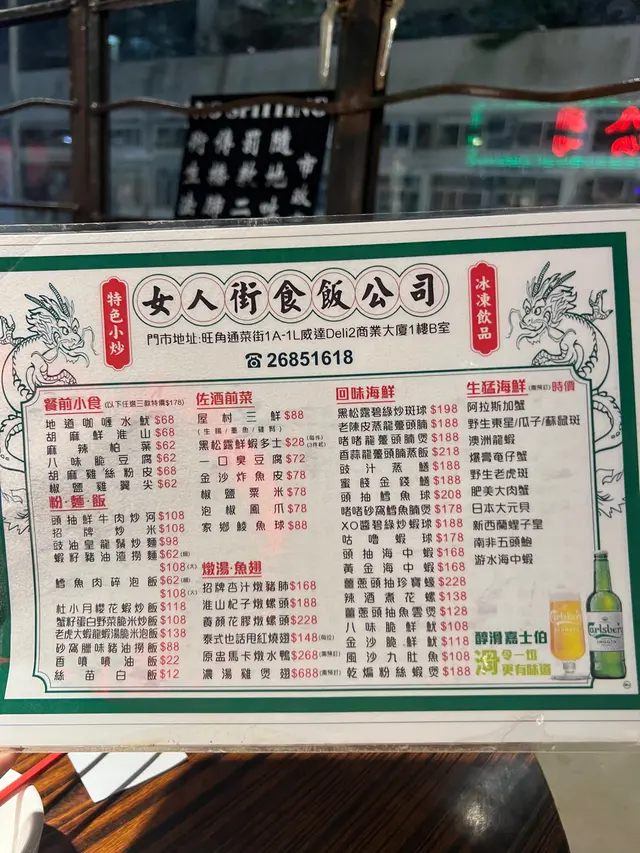 NO SPITTING
特色小炒
女人街食飯公司
冰凍飲品
門市地址:旺角通菜街1A-1L威達Deli2商業大廈1樓B室
☎26851618
餐前小食 (以下任選三款特價$178)
地道咖喱水魷 $68
胡麻鮮淮山 $68
麻辣柏葉 $62
八味脆豆腐 $62
胡麻雞絲粉皮 $68
椒鹽雞翼尖 $62
粉·麵·飯
頭抽鮮牛肉炒河 $108
招牌炒米 $108
豉油皇龍鬚炒麵 $98
蝦籽豬油渣撈麵 $62(細)
$108(大)
鱈魚肉碎泡飯 $62(細)
$108(大)
杜小月櫻花蝦炒飯 $118
蟹籽蛋白野菜脆米炒飯 $108
老虎大蝦龍蝦湯脆米泡飯 $138
砂窩臘味豬油撈飯 $88
香噴噴油飯 $22
絲苗白飯 $12
佐酒前菜
屋村三鮮 $88
(生腸/墨魚/雞腎)
黑松露鮮蝦多士 $28(每件)(3件起)
一口臭豆腐 $72
金沙炸魚皮 $78
椒鹽粟米 $78
泡椒鳳爪 $78
家鄉鯪魚球 $88
燉湯·魚翅
招牌杏汁燉豬肺 $168
淮山杞子燉螺頭 $188
養顏花膠燉螺頭 $228
泰式也話用紅燒翅 $148(每位)
原盅馬卡燉水鴨 $268(需預訂)
濃湯雞煲翅 $688(需預訂)
回味海鮮
黑松露碧綠炒斑球 $198
老陳皮蒸龍躉頭腩 $188
啫啫龍躉頭腩煲 $188
香蒜龍躉頭腩蒸飯 $218
豉汁蒸鱔 $188
蜜餞金錢鱔 $188
頭抽鱈魚球 $208
啫啫砂窩鱈魚腩煲 $178
XO醬碧綠炒蝦球 $188
咕嚕蝦球 $178
頭抽海中蝦 $168
黃金海中蝦 $168
薑蔥頭抽珍寶蠔 $228
辣酒煮花螺 $138
薑蔥頭抽魚雲煲 $128
八味脆鮮魷 $108
金沙脆鮮魷 $118
風沙九肚魚 $108
乾煸粉絲蝦煲 $188
生猛海鮮 (需預訂) 時價
阿拉斯加蟹
野生東星/瓜子/蘇鼠斑
澳洲龍蝦
爆膏奄仔蟹
野生老虎斑
肥美大肉蟹
日本大元貝
新西蘭蟶子皇
南非五頭鮑
游水海中蝦
Carlsberg
Carlsberg
醇滑嘉士伯
滑令一切
更有味道